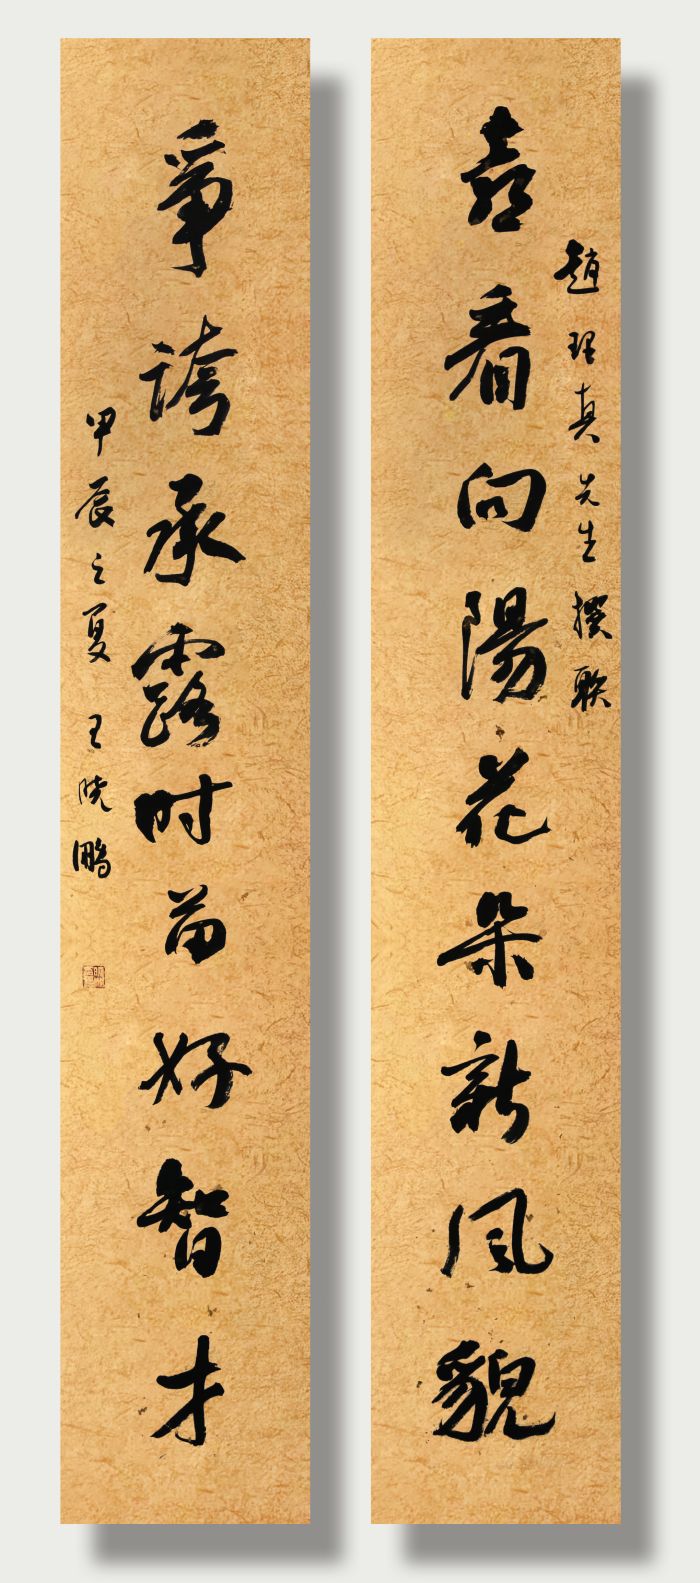 趙理真先生撰联
喜看向陽花朵新风貌
爭誇承露时苗好智才
甲辰之夏 王晓鵬